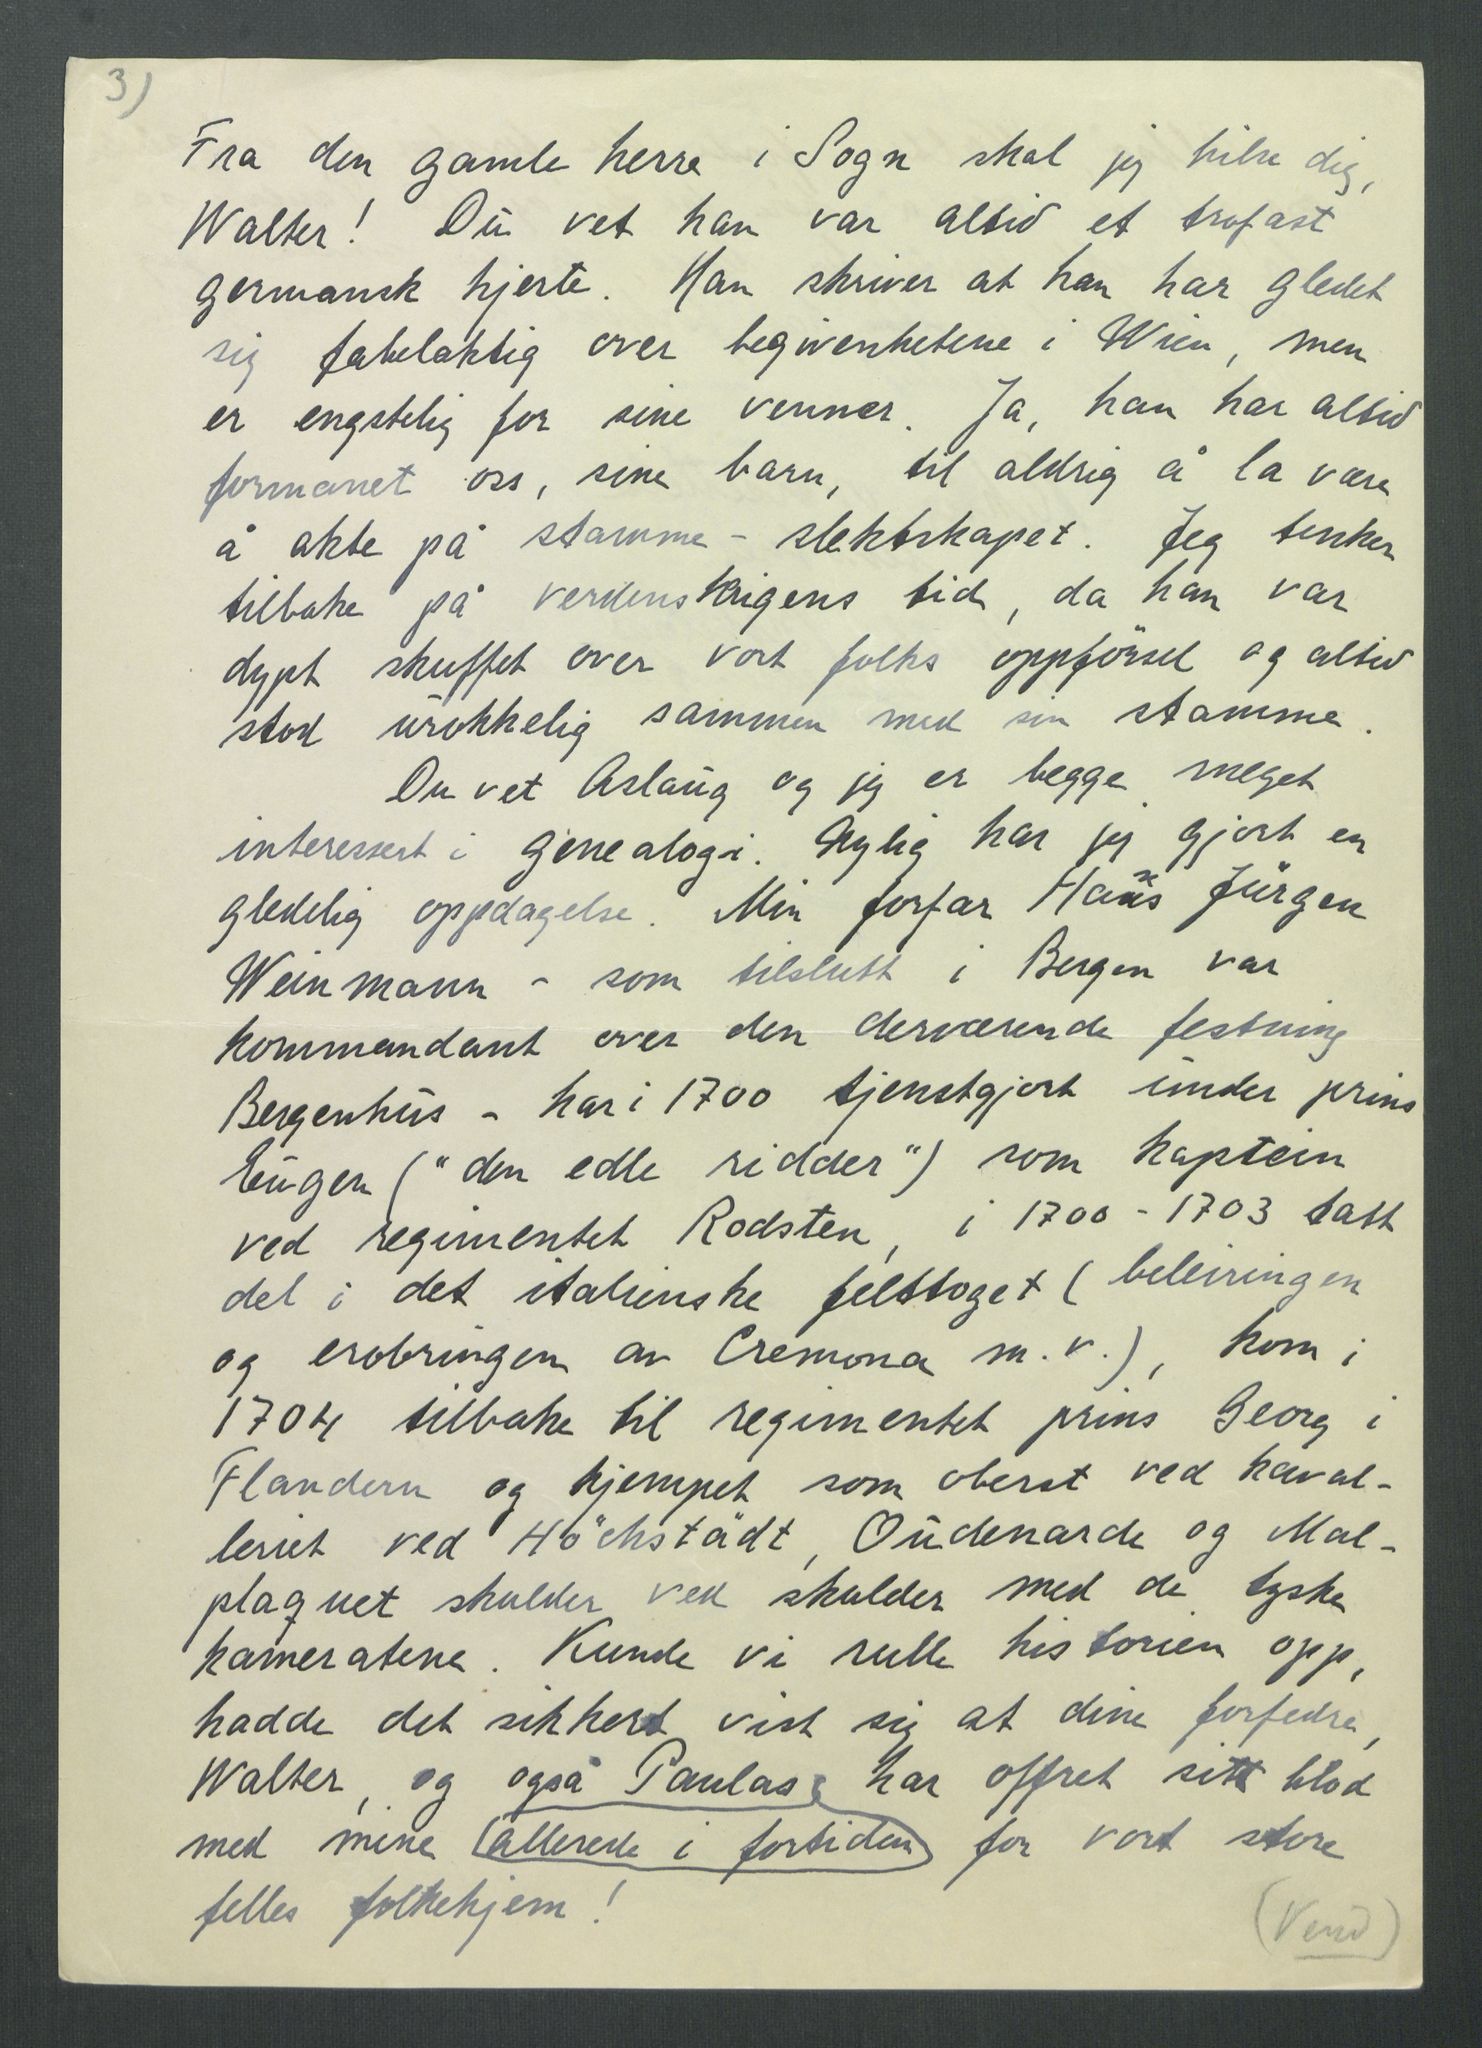 3)
Fra den gamle herre i Sogn skal jeg hilse dig,
Walter! Du vet han var altid et trofast
germansk hjerte. Han skriver at han har gledet
sig fabelaktig over begivenhetene i Wien, men
er engstelig for sine venner. Ja, han har altid
formanet oss, sine barn, til aldrig å la være
å akte på stamme-slektskapet. Jeg tenker
tilbake på verdenskrigens tid, da han var
dypt skuffet over vort folks oppförsel og altid
stod urokkelig sammen med sin stamme.
Du vet Aslaug og jeg er begge meget
interessert i genealogi. Nylig har jeg gjort en
gledelig oppdagelse. Min forfar Hans Jürgen
Weinmann - som tilslutt i Bergen var
kommandant over den derværende festning
Bergenhus - har i 1700 tjenstgjort under prins
Eugen ("den edle ridder") som kaptein
ved regimentet Rodsten, i 1700-1703 tatt
del i det italienske felttoget (beleiringen
og erobringen av Cremona m.v.), kom i
1704 tilbake til regimentet prins Georg i
Flandern og kjempet som oberst ved kaval-
leriet ved Höchstädt, Oudenarde og Mal-
plaquet skulder ved skulder med de tyske
kameratene. Kunde vi rulle historien opp,
hadde det sikkert vist sig at dine forfedre,
Walter, og også Paulas har offret sitt blod
med mine allerede i fortiden for vort store
felles folkehjem!
(Vend)